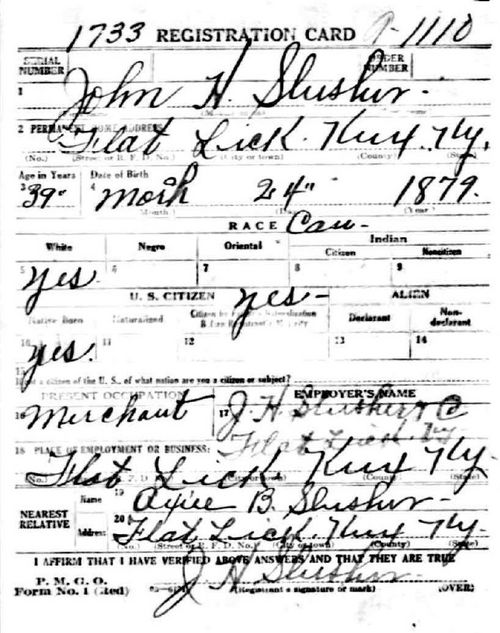 1733 REGISTRATION CARD 1110
SERIAL NUMBER
ORDER NUMBER
1 John H. Slusher
2 PERMANENT HOME ADDRESS
Flat Lick. Knx Ky.
(No.) (Street or R. F. D. No.) (City or town) (County) (State)
Age in Years Date of Birth
3 39 4 March 24 1879.
(Month.) (Day.) (Year.)
RACE Cau
White Negro Oriental Indian
Citizen Noncitizen
5 yes 6 7 8 9
U. S. CITIZEN yes ALIEN
Native Born Naturalized Citizen by Father's Naturalization Before Registrant's Majority Declarant Non-declarant
10 yes. 11 12 13 14
15
If not a citizen of the U. S., of what nation are you a citizen or subject?
PRESENT OCCUPATION EMPLOYER'S NAME
16 Merchant 17 J. H. Slusher & C
Flat Lick. Ky
18 PLACE OF EMPLOYMENT OR BUSINESS:
Flat Lick Knx Ky.
(No.) (City or town) (County) (State)
NEAREST RELATIVE
Name 19 B. Slusher
Address 20 Flat Lick. Knx Ky.
(No.) (Street or R. F. D. No.) (City or town) (County) (State)
I AFFIRM THAT I HAVE VERIFIED ABOVE ANSWERS AND THAT THEY ARE TRUE
P. M. G. O.
Form No. 1 (Red) J H Slusher
(Registrant's signature or mark) (OVER)